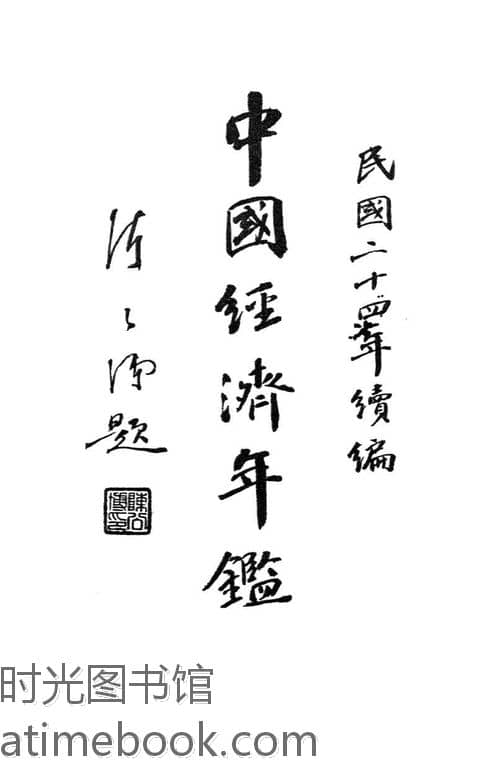 民國二十四年續編
中國經濟年鑑
陳公博題
陳公博印
时光图书馆
atimebook.com